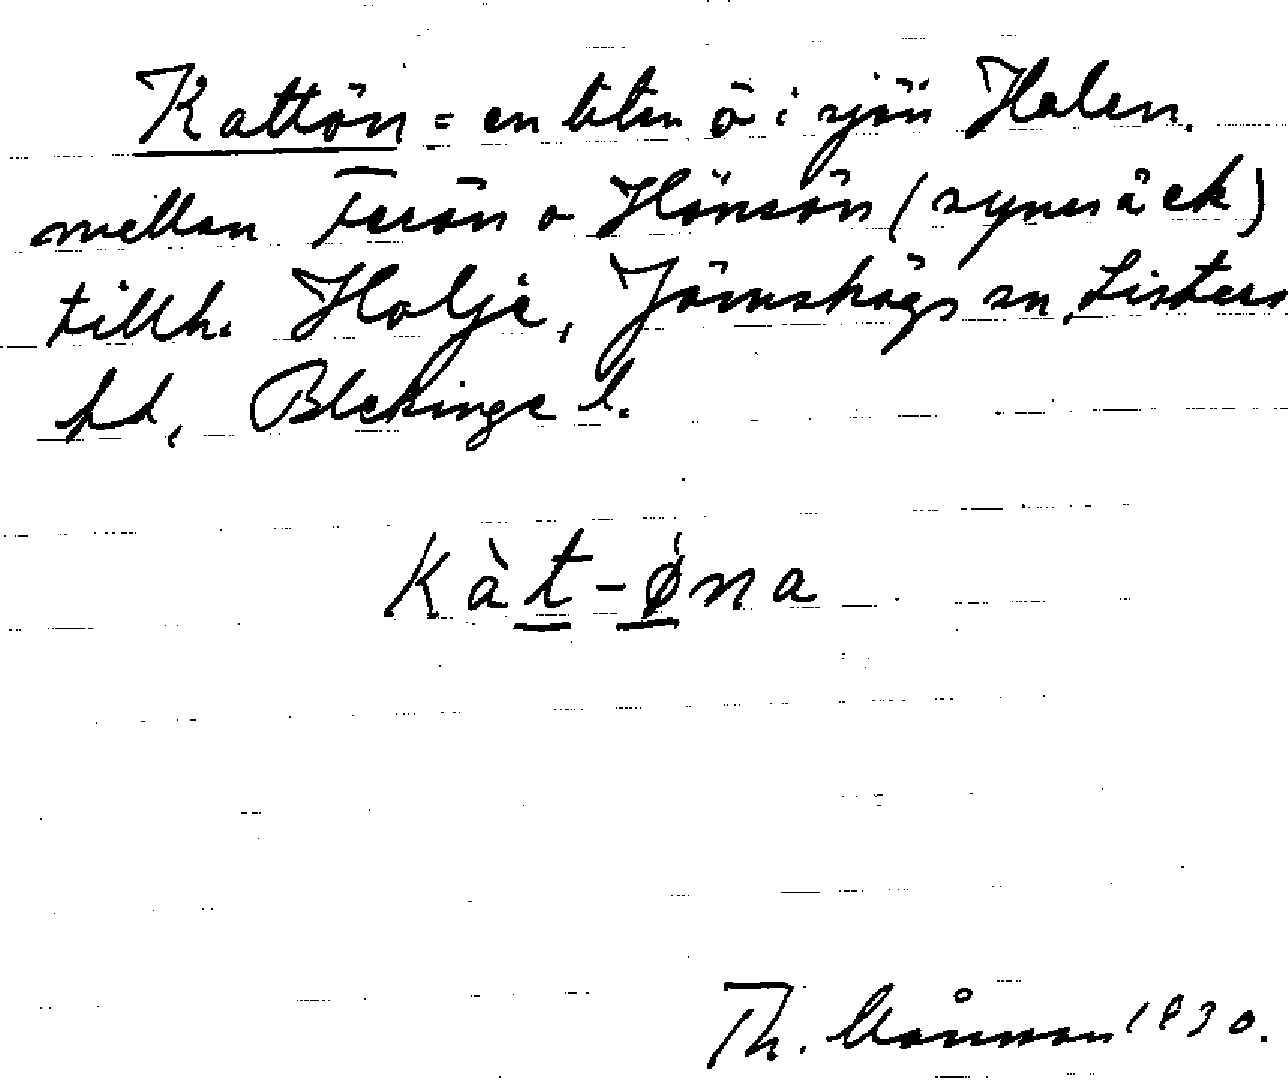 Kattön = en liten ö i sjön Halen.
mellan Ferön o Hönsön (synes äck)
tillh. Holje, Jämshögs sn, Listers
hd, Blekinge l.
Kàt-øna
Th. 1930.